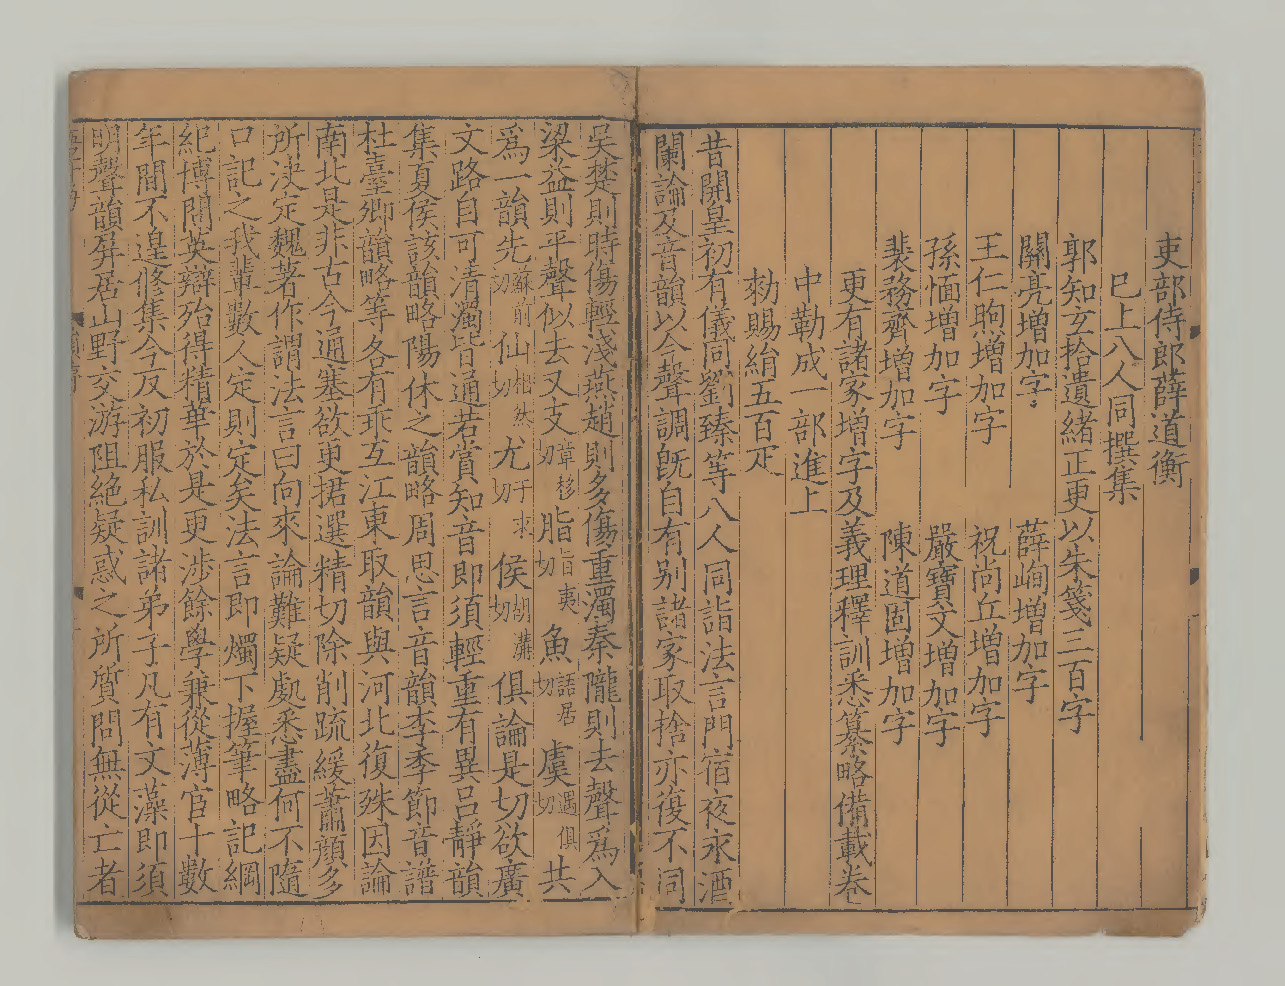 吏部侍郎薛道衡
已上八人同撰集
郭知玄拾遺緒正更以朱箋三百字
關亮增加字 薛峋增加字
王仁煦增加字 祝尚丘增加字
孫愐增加字 嚴寶文增加字
裴務齊增加字 陳道固增加字
更有諸家增字及義理釋訓悉纂略備載卷
中勒成一部進上
勑賜絹五百疋
昔開皇初有儀同劉臻等八人同詣法言門宿夜永酒
闌論及音韻以今聲調旣自有别諸家取捨亦復不同
吳楚則時傷輕淺燕趙則多傷重濁秦隴則去聲爲入
梁益則平聲似去又支章移切脂旨夷切魚語居切虞遇俱切共
爲一韻先蘇前切仙相然切尤于求切侯胡溝切俱論是切欲廣
文路自可清濁皆通若賞知音即須輕重有異吕靜韻
集夏侯該韻略陽休之韻略周思言音韻李季節音譜
杜臺卿韻略等各有乖互江東取韻與河北復殊因論
南北是非古今通塞欲更捃選精切除削疏緩蕭顏多
所決定魏著作謂法言曰向來論難疑處悉盡何不隨
口記之我輩數人定則定矣法言即燭下握筆略記綱
紀博問英辯殆得精華於是更涉餘學兼從薄宦十數
年間不遑修集今反初服私訓諸弟子凡有文藻即須
明聲韻屏居山野交游阻絶疑惑之所質問無從亡者